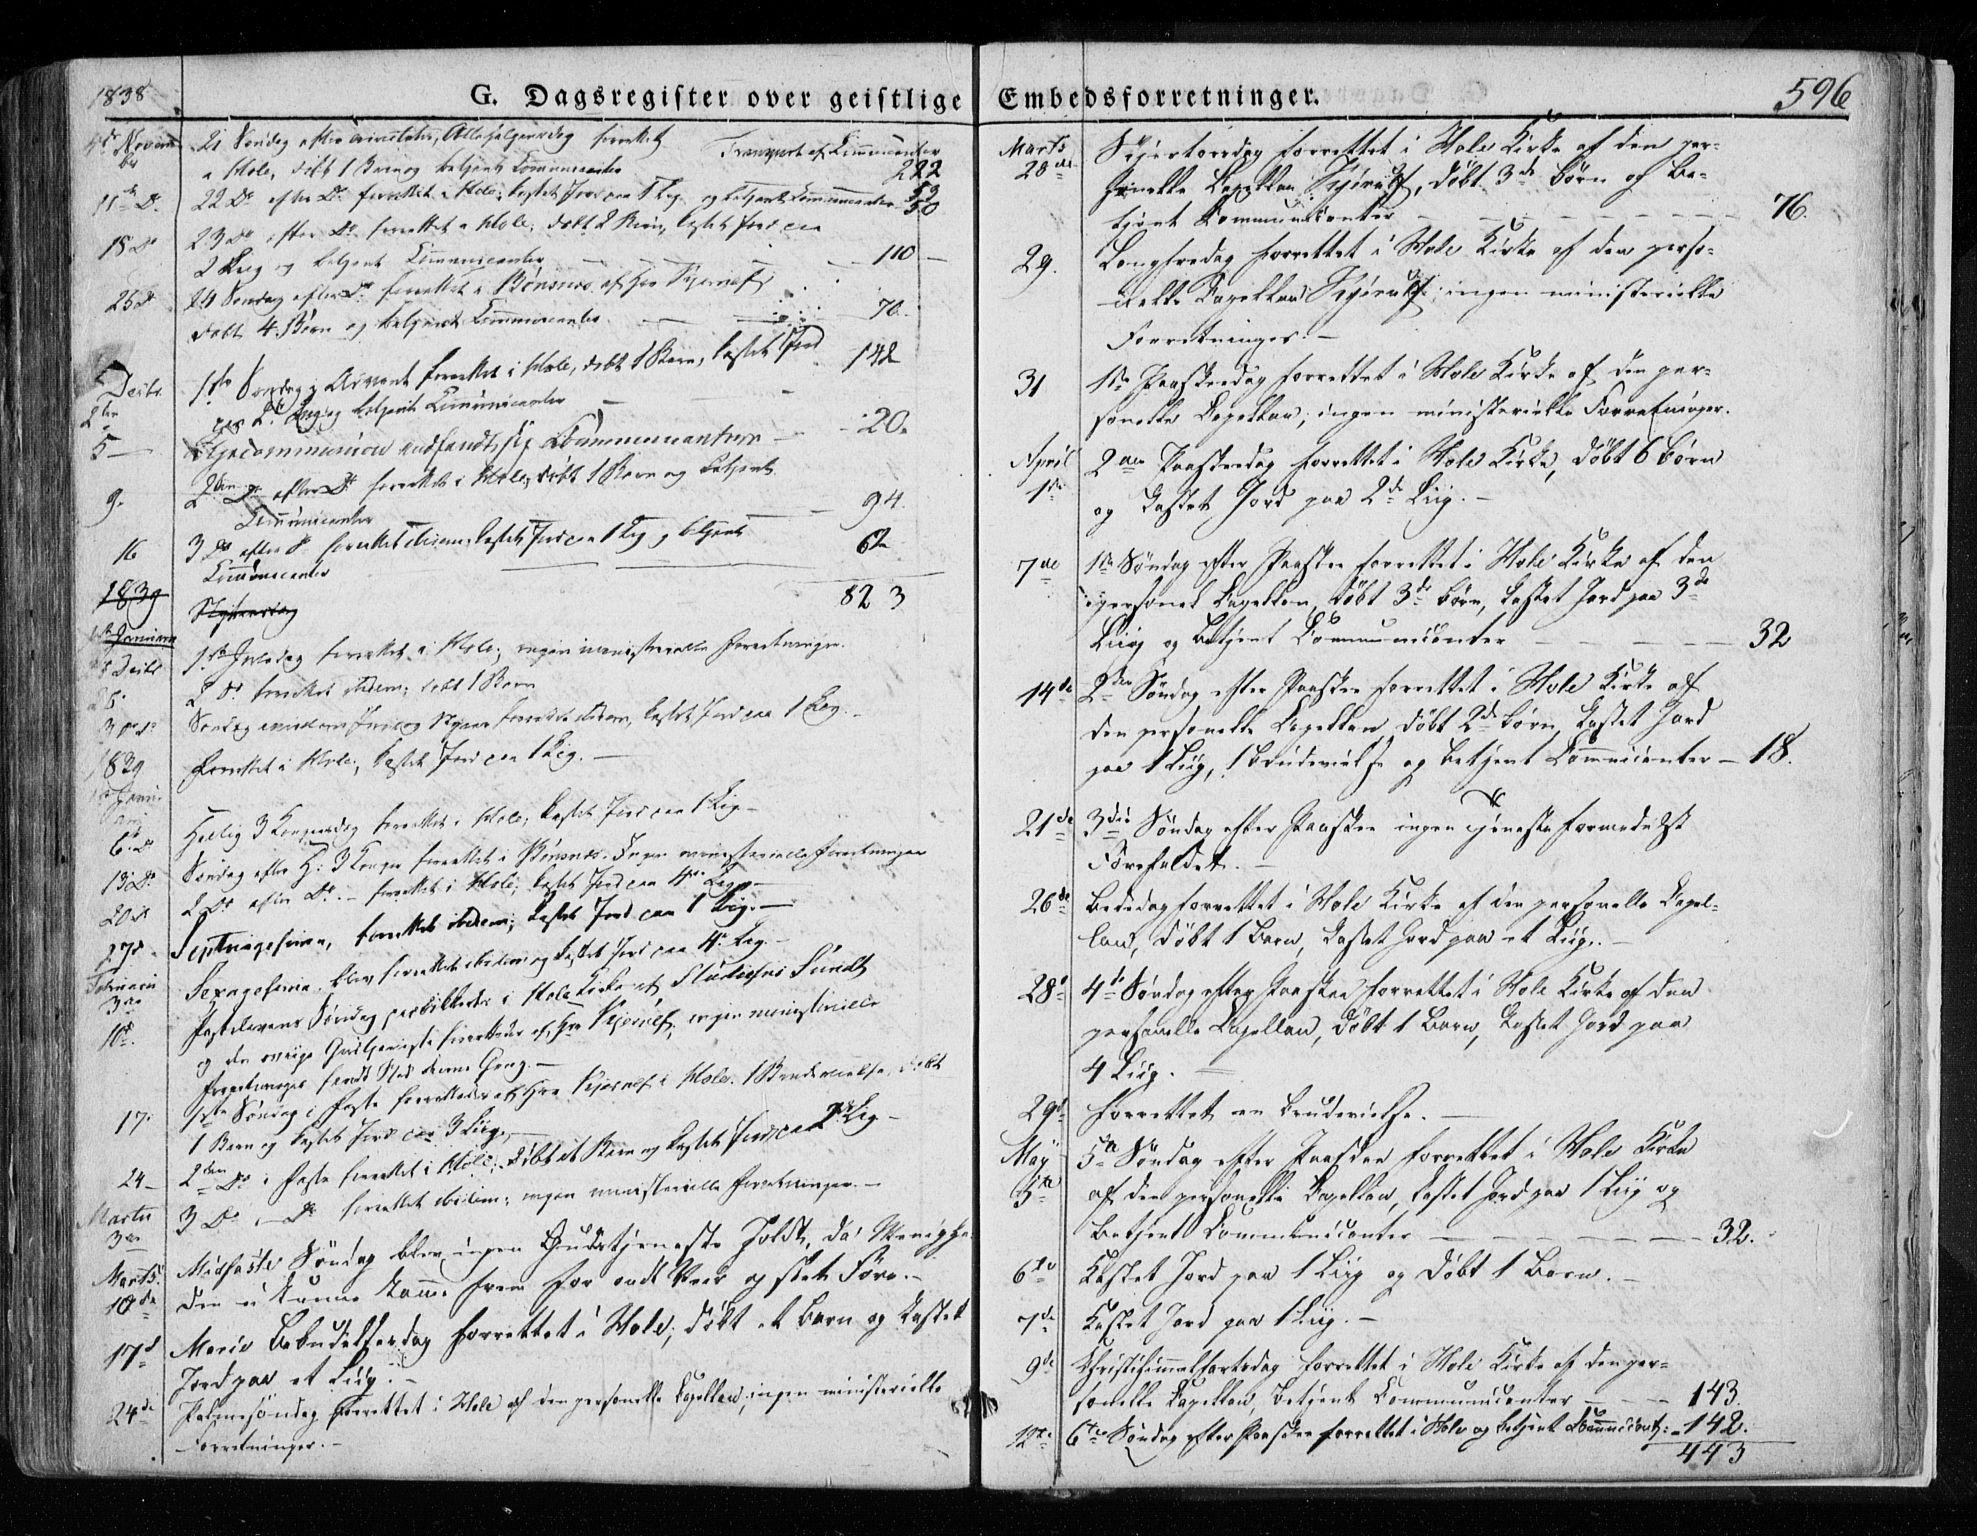 1838
G. Dagsregister over geistlige
4de Novem
ber
21 Søndag efter Trinitatis, Allehelgensdag forrettet Transport af Communicanter
i Hole, døbt 1 Barn og betjent Communicanter 222
53
11te Do. 22 Do efter Do. forrettet i Hole, kastet Jord paa 1 Lig og betjent Communicanter 50
18 Do 23 Do efter Do. forrettet i Hole, døbt 2 Børn, kastet Jord paa
2 Liig og betjent Communicanter — 110 —
25 Do. 24 Søndag efter Do. forrettet i Bønsnes af Hr Kjerulf,
døbt 4 Børn og betjent Communicanter — 70.
Decbr.
2den
1ste Søndag i Advent forrettet i Hole, døbt 1 Barn, kastet Jord 142
paa 2de Liig og betjent Communicanter
5 — indfandt sig Communicantere — 20.
9. 2den Do. efter Do forrettet i Hole, døbt 1 Barn og betjent
Communicanter — 94.
16 3 Do efter Do forrettet ibidem, kastet Jord paa 1 Lig og betjent 62
Communicanter
1839 Nytaarsdag 823
1ste Januar
25 Decbr 1ste Juledag forrettet i Hole; ingen ministerielle Forretninger.
26. 2 Do. forrettet ibidem; døbt 1 Barn
30 Do. Søndag imellem Juul og Nytaar forrettet ibidem, kastet Jord paa 1 Lig. —
1839 forrettet i Hole, kastet Jord paa 1 Lig. —
1ste Janu-
ari
6te Do Hellig 3 Kongersdag forrettet i Hole, kastet Jord paa 1 Lig —
13 Do. Søndag efter H: 3 Konger forrettet i Bønsnes. Ingen ministerielle Forretninger
20 Do 2 Do efter Do. — forrettet i Hole, kastet Jord paa 4re Lig. —
27 Do Septuagesima, forrettet ibidem, kastet Jord paa 1 Lig. —
Februari
3die
Sexagesima. blev forrettet ibidem og kastet Jord paa 4re Lig. —
10de. Fastelavens Søndag prædikkedes i Hole Kirke af Studiosus Sundt
og den øvrige Gudstjeneste forrettedes af Hr Kjerulf; ingen ministerielle
Forretninger fandt Sted denne Gang. —
17. 1ste Søndag i Faste forrettedes af Hr Kjerulf i Hole. 1 Brudevielse, døbt
1 Barn og kastet Jord paa 3 Liig. —
24 — 2den Do i Faste forrettet i Hole; døbt et Barn og kastet Jord paa 2de Lig —
Marts
3die
3 Do. — Do. forrettet ibidem; ingen ministerielle Forretninger. —
Marts.
10de
Midfaste Søndag blev ingen Gudstjeneste holdt, da Menighe-
den ei kunne komme frem for ondt Veir og slet Føre. —
17de Mariæ Bebudelsesdag forrettet i Hole; døbt et Barn og kastet
Jord paa et Liig. —
24de Palmesøndag forrettet i Hole af den personelle Capellan; ingen ministerielle
Forretninger. —
Embedsforretninger. 596
Marts
28de
Skjærtorsdag forrettet i Hole Kirke af den per-
sonelle Capellan Kjerulf, døbt 3de Børn og be-
tjent Communicanter — 76.
29. Langfredag forrettet i Hole Kirke af den perso-
nelle Capellan Kjerulf; ingen ministerielle
Forretninger. —
31 1ste Paaskedag forrettet i Hole Kirke af den per-
sonelle Capellan; ingen ministerielle Forretninger.
April
1ste
2den Paaskedag forrettet i Hole Kirke, døbt 6 Børn
og kastet Jord paa 2de Liig. —
7de 1ste Søndag efter Paaske forrettet i Hole Kirke af den
personel Capellan, døbt 3de Børn, kastet Jord paa 3de
Liig og betjent Communicanter — 32
14de 2den Søndag efter Paaske forrettet i Hole Kirke af
den personelle Capellan, døbt 2de Børn, kastet Jord
paa 1 Liig, 1 Brudevielse og betjent Communicanter — 18.
21de 3die Søndag efter Paaske ingen Tjeneste formedelst
Førefaldet. —
26de Bededag forrettet i Hole Kirke af den personelle Capel-
lan, døbt 1 Barn, kastet Jord paa et Liig. —
28de 4de Søndag efter Paaske forrettet i Hole Kirke af den
personelle Capellan, døbt 1 Barn, kastet Jord paa
4 Liig. —
29de Forrettet en Brudevielse. —
May
5te
5te Søndag efter Paaske forrettet i Hole Kirke
af den personelle Capellan, kastet Jord paa 1 Liig og
betjent Communicanter — 32.
6te Kastet Jord paa 1 Liig og døbt 1 Barn. —
7de Kastet Jord paa 1 Liig. —
9de Christihimmelfartsdag forrettet i Hole Kirke af den per-
sonelle Capellan, betjent Communicanter — 143.
12te 6te Søndag efter Paaske forrettet i Hole og betjent Communicant: — 142.
443